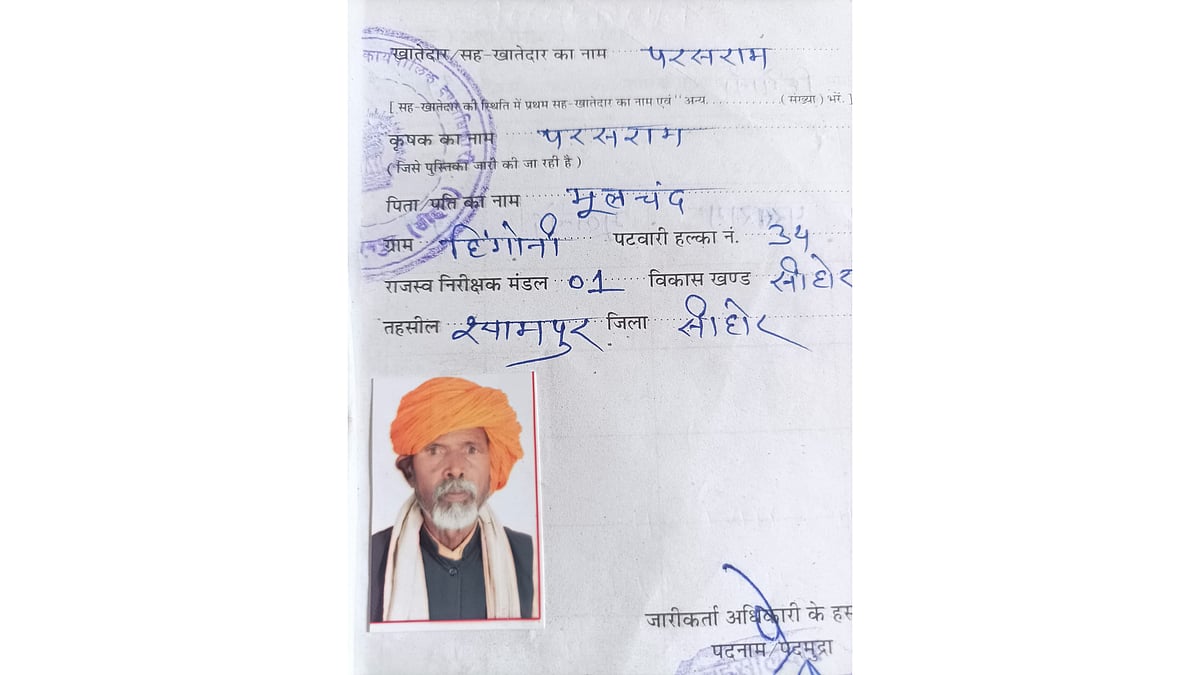 खातेदार/सह-खातेदार का नाम परसराम
[ सह-खातेदार की स्थिति में प्रथम सह-खातेदार का नाम एवं "अन्य............( संख्या ) भरें. ]
कृषक का नाम परसराम
( जिसे पुस्तिका जारी की जा रही है )
पिता/पति का नाम मूलचंद
ग्राम हिंगोनी पटवारी हल्का नं. 34
राजस्व निरीक्षक मंडल 01 विकास खण्ड सीहोर
तहसील श्यामपुर जिला सीहोर
जारीकर्ता अधिकारी के हस
पदनाम/पदमुद्रा